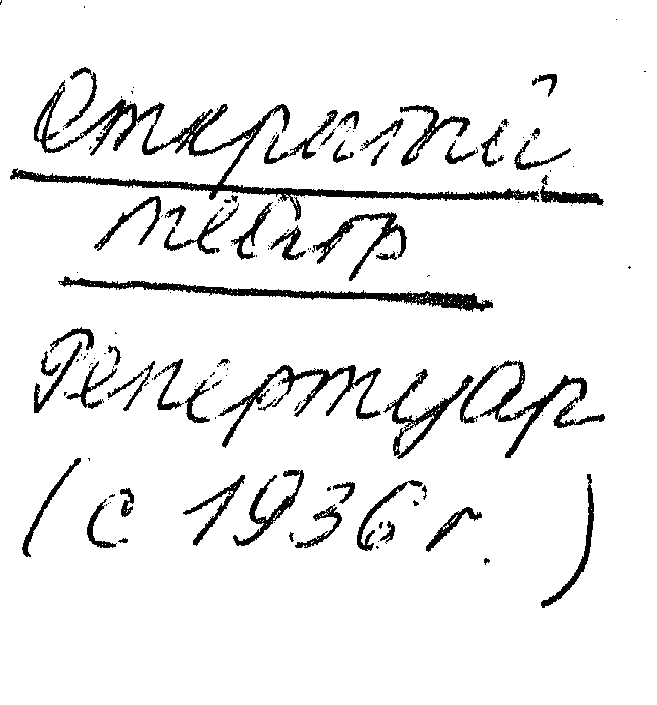 Открытый
театр
Репертуар
(с 1936 г.)